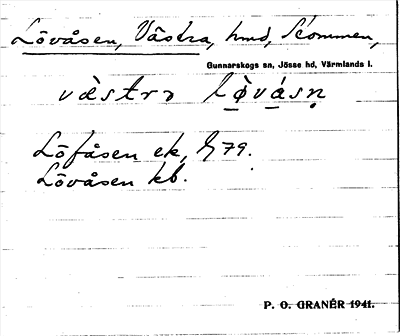 Lövåsen, Västra, hmd, Skommen,
Gunnarskogs sn, Jösse hd, Värmlands l.
västrɔ lö̀vásn̥
Löfåsen ek, 79.
Lövåsen kb.
P. O. GRANÉR 1941.